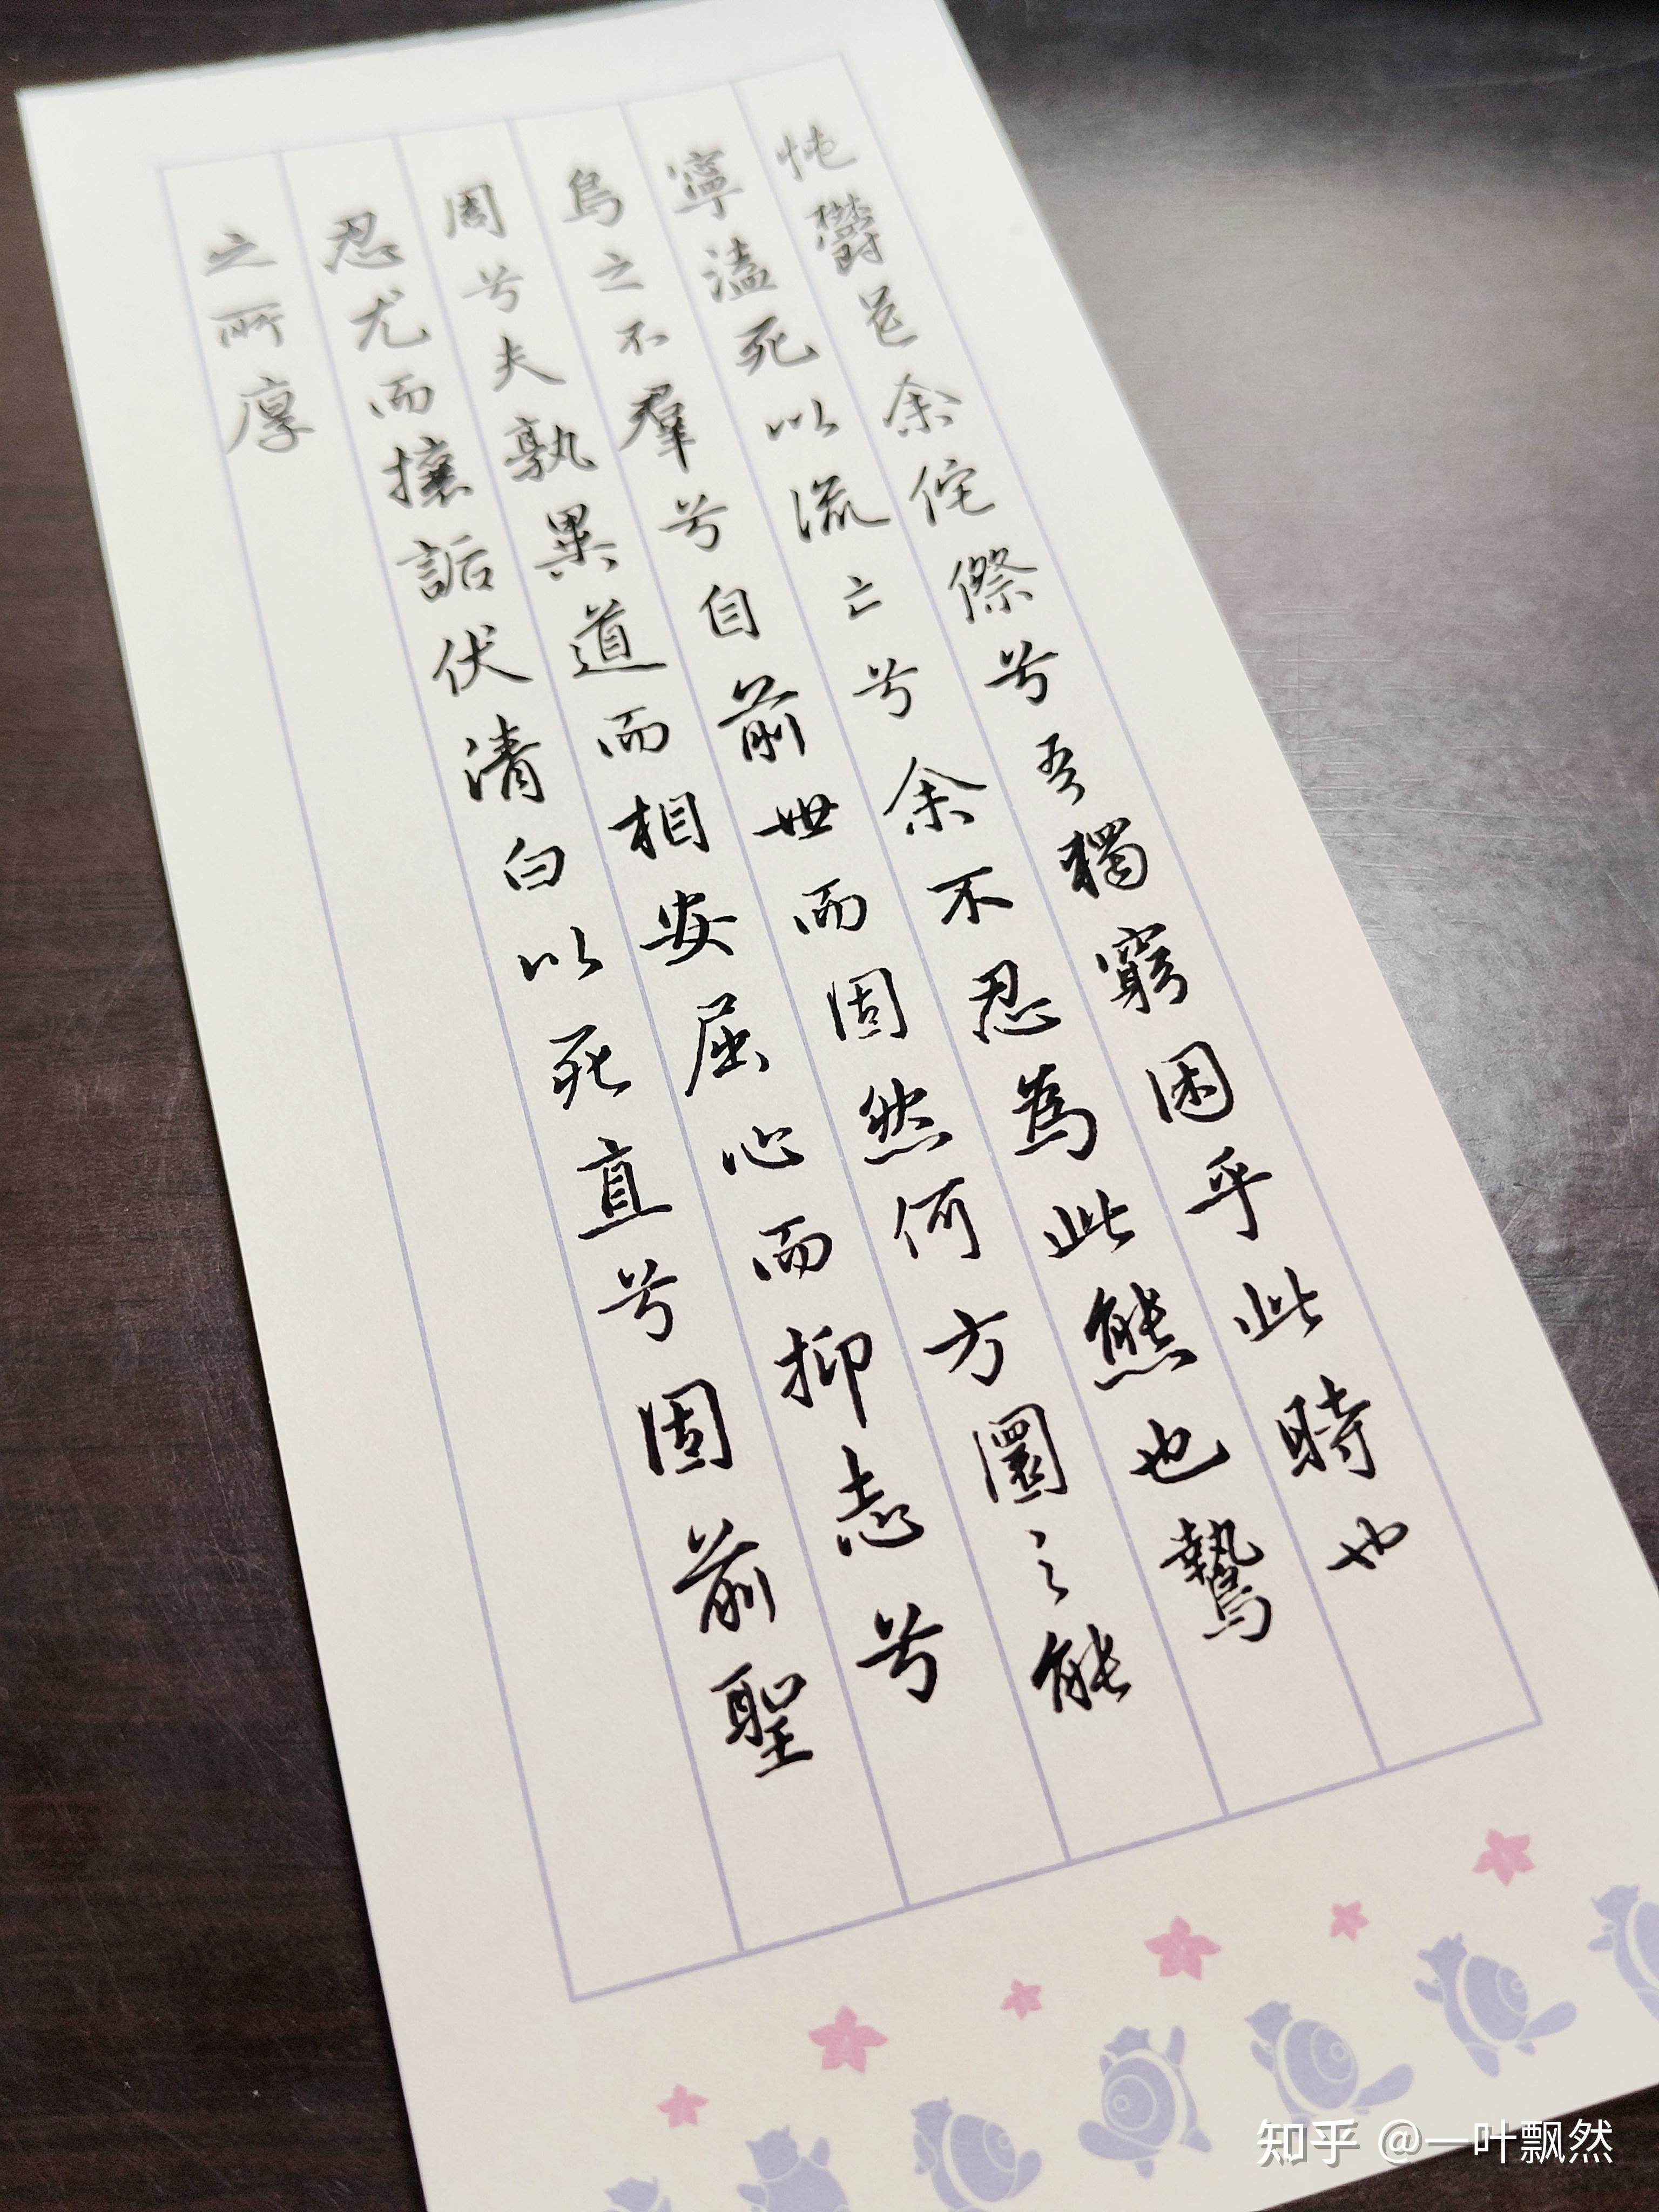 忳鬱邑余侘傺兮吾獨窮困乎此時也
寧溘死以流亡兮余不忍為此態也鷙
鳥之不羣兮自前世而固然何方圜之能
周兮夫孰異道而相安屈心而抑志兮
忍尤而攘詬伏清白以死直兮固前聖
之所厚
知乎 @一叶飘然